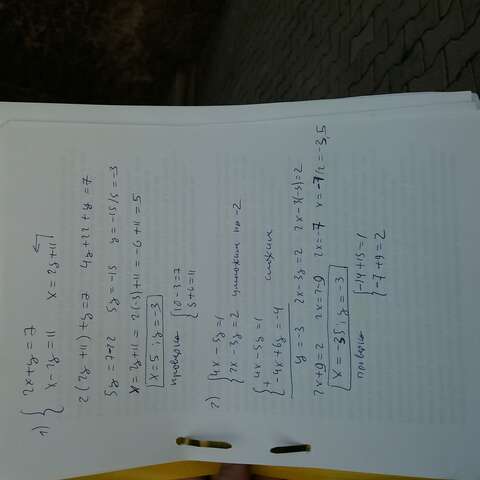 1) { 2x+y=7
x-2y=11 x=2y+11
2(2y+11)+y=7 4y+22+y=7
5y=7-22 5y=-15 y=-15/5=-3
x=2y+11=2(-3)+11=-6+11=5
x=5; y=-3
проверка { 10-3=7
5+6=11
2) { 4x-5y=1
2x-3y=2 умножим на -2
{ + 4x-5y=1
-4x+6y=-4 сложим
y=-3 2x-3y=2 2x-3(-3)=2
2x+9=2 2x=2-9 2x=-7 x=-7/2=-3,5
x=-3,5; y=-3
проверка { -14+15=1
-7+9=2